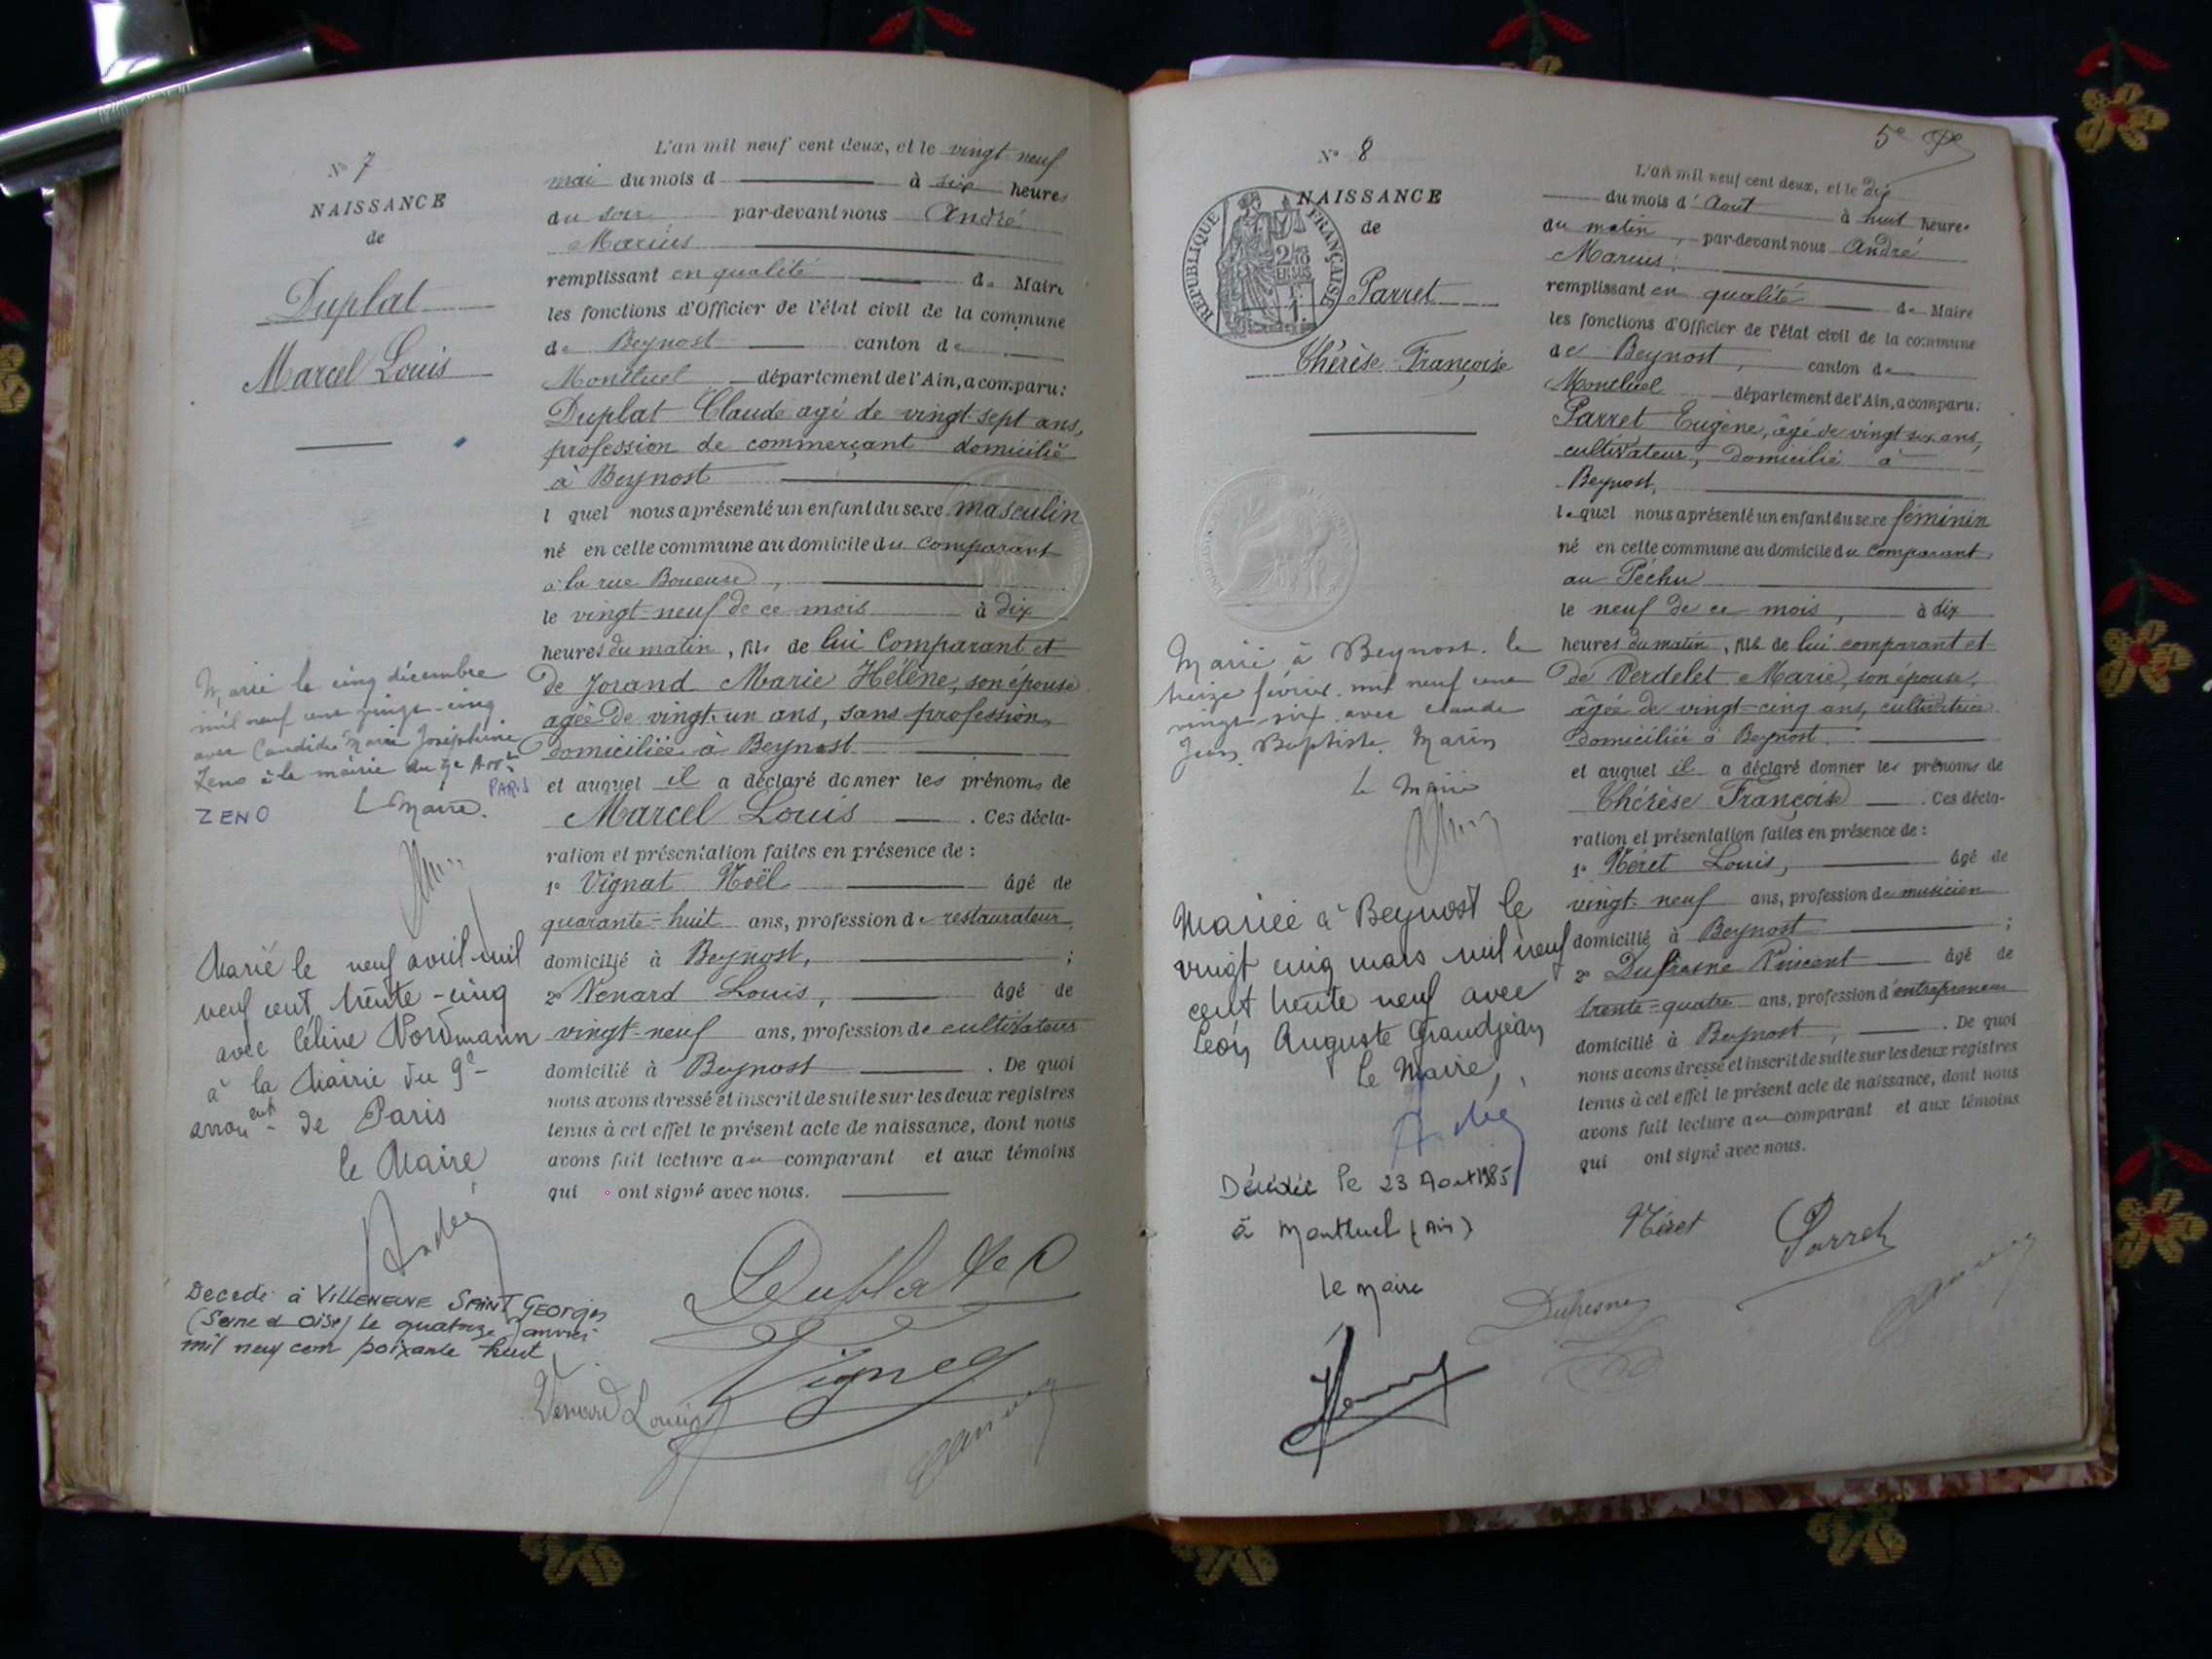 N° 7
NAISSANCE
de
Duplat
Marcel Louis
L'an mil neuf cent deux, et le vingt neuf
mai du mois d à six heures
du soir par-devant nous André
Marius
remplissant en qualité de Maire
les fonctions d'Officier de l'état civil de la commune
de Beynost canton de
Montluel département de l'Ain, a comparu:
Duplat Claude agé de vingt-sept ans,
profession de commerçant domicilié
à Beynost
l quel nous a présenté un enfant du sexe masculin
né en cette commune au domicile du comparant
à la rue Boueuse,
le vingt-neuf de ce mois à dix
heures du matin, fils de lui Comparant et
de Jorand Marie Hélène, son épouse
agée de vingt-un ans, sans profession,
domiciliée à Beynost
et auquel il a déclaré donner les prénoms de
Marcel Louis . Ces décla-
ration et présentation faites en présence de :
1° Vignat Noël âgé de
quarante-huit ans, profession de restaurateur,
domicilié à Beynost, ;
2° Venard Louis, âgé de
vingt-neuf ans, profession de cultivateur
domicilié à Beynost . De quoi
nous avons dressé et inscrit de suite sur les deux registres
tenus à cet effet le présent acte de naissance, dont nous
avons fait lecture au comparant et aux témoins
qui ont signé avec nous.
Marié le cinq décembre
mil neuf cent vingt-cinq
avec Candide Marie Joséphine
Zeno à la mairie du Arrt
PARIS
ZENO Le Maire.
Marié le neuf avril mil
neuf cent trente-cinq
avec Céline Nordmann
à la Mairie du 9e
arront de Paris
le Maire
André
Decede à VILLENEUVE SAINT GEORGES
(Seine et Oise) le quatorze janvier
mil neuf cent soixante huit
Duplat
Vignat
Venard Louis
5e
N° 8
NAISSANCE
de
REPUBLIQUE FRANÇAISE
2/10 EN SUS
Parret
Thérèse Françoise
L'an mil neuf cent deux, et le dix
du mois d'Aout à huit heures
du matin, par-devant nous André
Marius,
remplissant en qualité de Maire
les fonctions d'Officier de l'état civil de la commune
de Beynost, canton de
Montluel département de l'Ain, a comparu:
Parret Eugène, âgé de vingt six ans,
cultivateur, domicilié à
Beynost,
lequel nous a présenté un enfant du sexe féminin
né en cette commune au domicile du comparant,
au Péchu
le neuf de ce mois, à dix
heures du matin, fille de lui comparant et
de Verdelet Marie, son épouse,
âgée de vingt-cinq ans, cultivatrice
domiciliée à Beynost.
et auquel il a déclaré donner les prénoms de
Thérèse Françoise . Ces décla-
ration et présentation faites en présence de :
1° Néret Louis, âgé de
vingt-neuf ans, profession de musicien
domicilié à Beynost ;
2° Dufresne Vincent âgé de
trente-quatre ans, profession d'entrepreneur
domicilié à Beynost, . De quoi
nous avons dressé et inscrit de suite sur les deux registres
tenus à cet effet le présent acte de naissance, dont nous
avons fait lecture au comparant et aux témoins
qui ont signé avec nous.
Marié à Beynost. le
treize février mil neuf cent
vingt-six avec Claude
Jean Baptiste Marin
Le Maire
Mariée à Beynost le
vingt cinq mars mil neuf
cent trente neuf avec
Léon Auguste Grandjean
Le Maire,
Décédée le 23 Aout 1985
à Montluel (Ain)
le Maire
Néret
Parret
Dufresne